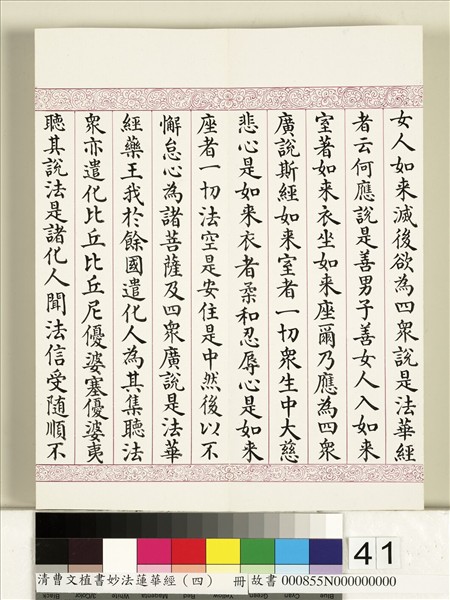 女人如來滅後欲為四衆說是法華經
者云何應說是善男子善女人入如來
室著如來衣坐如來座爾乃應為四衆
廣說斯經如來室者一切衆生中大慈
悲心是如來衣者柔和忍辱心是如來
座者一切法空是安住是中然後以不
懈怠心為諸菩薩及四衆廣說是法華
經藥王我於餘國遣化人為其集聽法
衆亦遣化比丘比丘尼優婆塞優婆夷
聽其說法是諸化人聞法信受随順不
41
清曹文植書妙法蓮華經（四） 冊 故書 000855N000000000